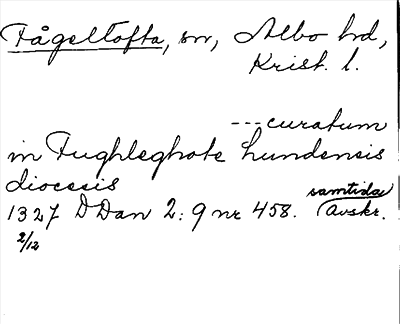 Fågeltofta, sn, Albo hd,
Krist. l.
---curatum
in Fughleghote Lundensis
diocesis
1327 D Dan 2:9 nr 458. samtida Avskr.
2/12